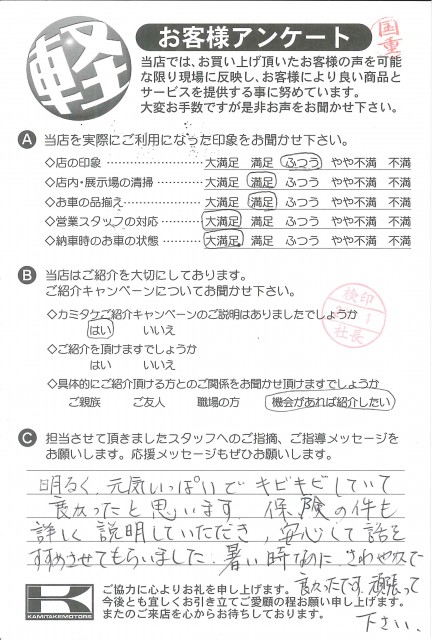 軽
お客様アンケート
国重
当店では、お買い上げ頂いたお客様の声を可能
な限り現場に反映し、お客様により良い商品と
サービスを提供する事に努めています。
大変お手数ですが是非お声をお聞かせ下さい。
A 当店を実際にご利用になった印象をお聞かせ下さい。
◇店の印象 大満足 満足 ふつう やや不満 不満
◇店内・展示場の清掃 大満足 満足 ふつう やや不満 不満
◇お車の品揃え 大満足 満足 ふつう やや不満 不満
◇営業スタッフの対応 大満足 満足 ふつう やや不満 不満
◇納車時のお車の状態 大満足 満足 ふつう やや不満 不満
B 当店はご紹介を大切にしております。
ご紹介キャンペーンについてお聞かせ下さい。
◇カミタケご紹介キャンペーンのご説明はありましたでしょうか
はい いいえ
◇ご紹介を頂けますでしょうか
はい いいえ
◇具体的にご紹介頂ける方とのご関係をお聞かせ頂けますでしょうか
ご親族 ご友人 職場の方 機会があれば紹介したい
検印
社長
C 担当させて頂きましたスタッフへのご指摘、ご指導メッセージを
お願いします。応援メッセージもぜひお願いします。
明るく、元気いっぱいで キビキビしていて
良かったと思います。保険の件も
詳しく説明していただき、安心して話を
すすめさせてもらいました。暑い時なのに、さわやかで
良かったです。頑張って
下さい。
KAMITAKEMOTORS
ご協力に心よりお礼を申し上げます。
今後とも宜しくお引き立てご愛顧の程お願い申し上げます。
またのご来店を心からお待ちしております。